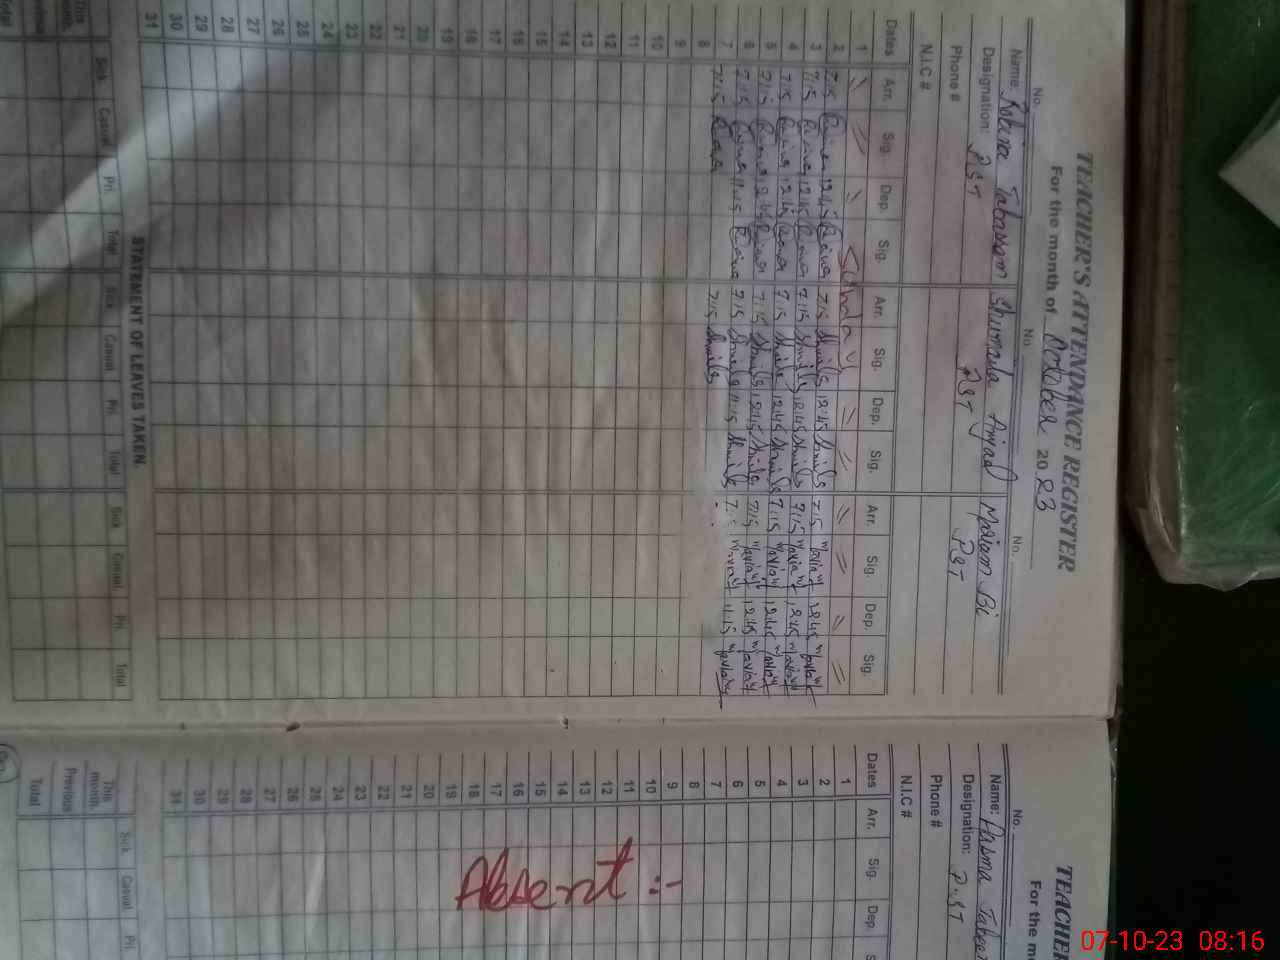 TEACHER'S ATTENDANCE REGISTER
For the month of October 2023
No. No. No.
Name: Robina Tabassam Shumaila Amjad Mariam Bi
Designation: PST PST PST
Phone #
N.I.C #
Dates Arr. Sig. Dep. Sig. Arr. Sig. Dep. Sig. Arr. Sig. Dep. Sig.
1 〃 〃 〃 Sunday 〃 〃 〃 〃 〃 〃
2 7:15 12:45 7:15 12:45 7:15 12:45
3 7:15 12:45 7:15 12:45 7:15 12:45
4 7:15 12:45 7:15 12:45 7:15 12:45
5 7:15 12:45 7:15 12:45 7:15 12:45
6 7:15 11:15 7:15 11:15 7:15 11:15
7 7:15 7:15
8
9
10
11
12
13
14
15
16
17
18
19
20
21
22
23
24
25
26
27
28
29
30
31
STATEMENT OF LEAVES TAKEN
Sick Casual Pri. Total Sick Casual Pri. Total Sick Casual Pri. Total
This month
Previous
Total
TEACHER
For the m
No.
Name: Tabeer
Designation: P.ST
Phone #
N.I.C #
Dates Arr. Sig. Dep. S
1
2
3
4
5
6
7
8
9
10
11
12
13
14
15
16
17
18
19
20
21
22
23
24
25
26
27
28
29
30
31
Absent :-
Sick Casual Pri.
This month
Previous
Total
07-10-23 08:16